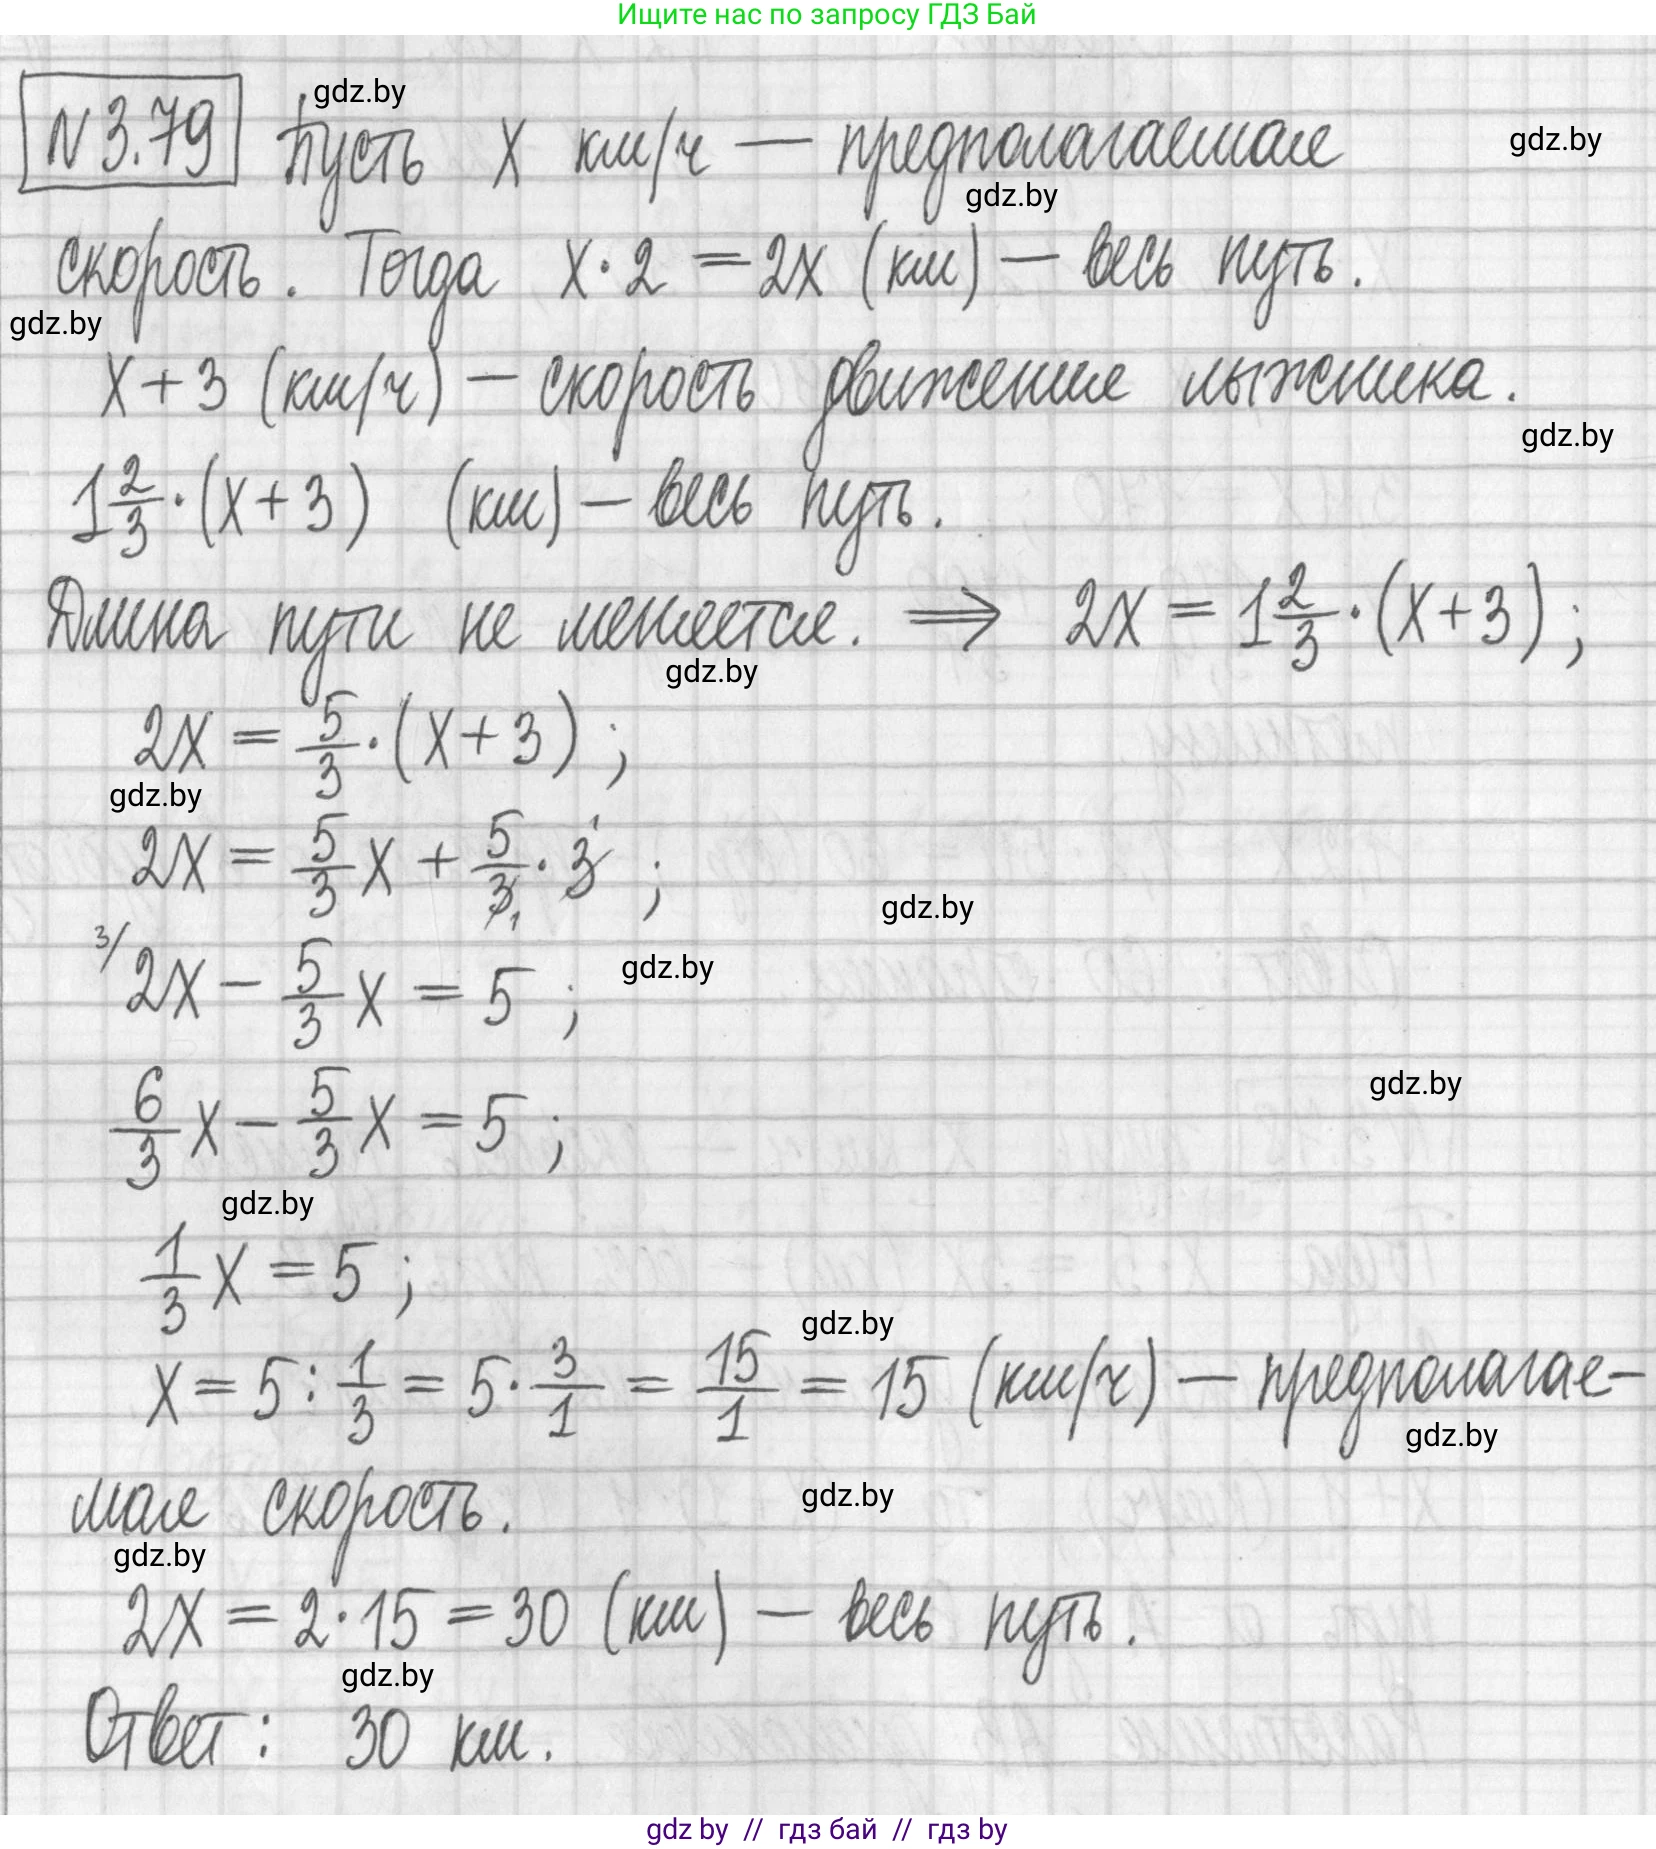 Ищите нас по запросу ГДЗ Бай
gdz.by
N 3.79 Пусть x км/ч — предполагаемая
gdz.by
gdz.by
скорость. Тогда x·2 = 2x (км) — весь путь.
gdz.by
x+3 (км/ч) — скорость движения лыжника.
gdz.by
1 2/3 · (x+3) (км) — весь путь.
Длина пути не меняется. ⇒ 2x = 1 2/3 · (x+3) ;
gdz.by
2x = 5/3 · (x+3) ;
gdz.by
2x = 5/3 x + 5/3 · 3 ;
gdz.by
3/ 2x − 5/3 x = 5 ;
gdz.by
gdz.by
6/3 x − 5/3 x = 5 ;
gdz.by
1/3 x = 5 ;
gdz.by
x = 5 : 1/3 = 5 · 3/1 = 15/1 = 15 (км/ч) — предполагае-
gdz.by
мая скорость.
gdz.by
gdz.by
2x = 2·15 = 30 (км) — весь путь.
gdz.by
Ответ: 30 км.
gdz by // гдз бай // гдз by